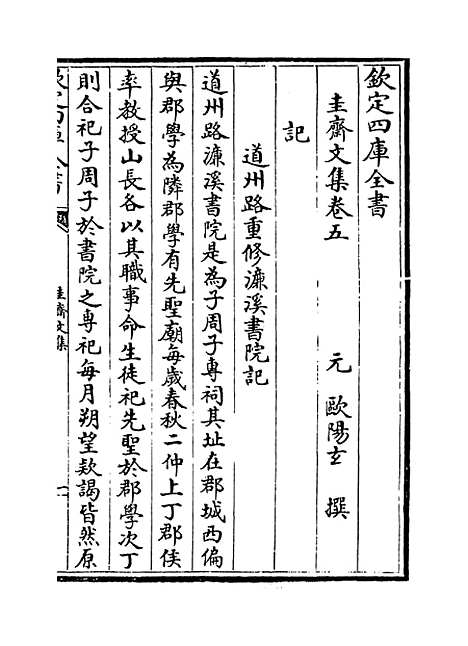 欽定四庫全書
圭齋文集卷五
元 歐陽玄 撰
記
道州路重修濂溪書院記
道州路濂溪書院是為子周子專祠其址在郡城西偏
與郡學為隣郡學有先聖廟每歲春秋二仲上丁郡侯
率教授山長各以其職事命生徒祀先聖於郡學次丁
則合祀子周子於書院之専祀每月朔望欵謁皆然原
圭齋文集